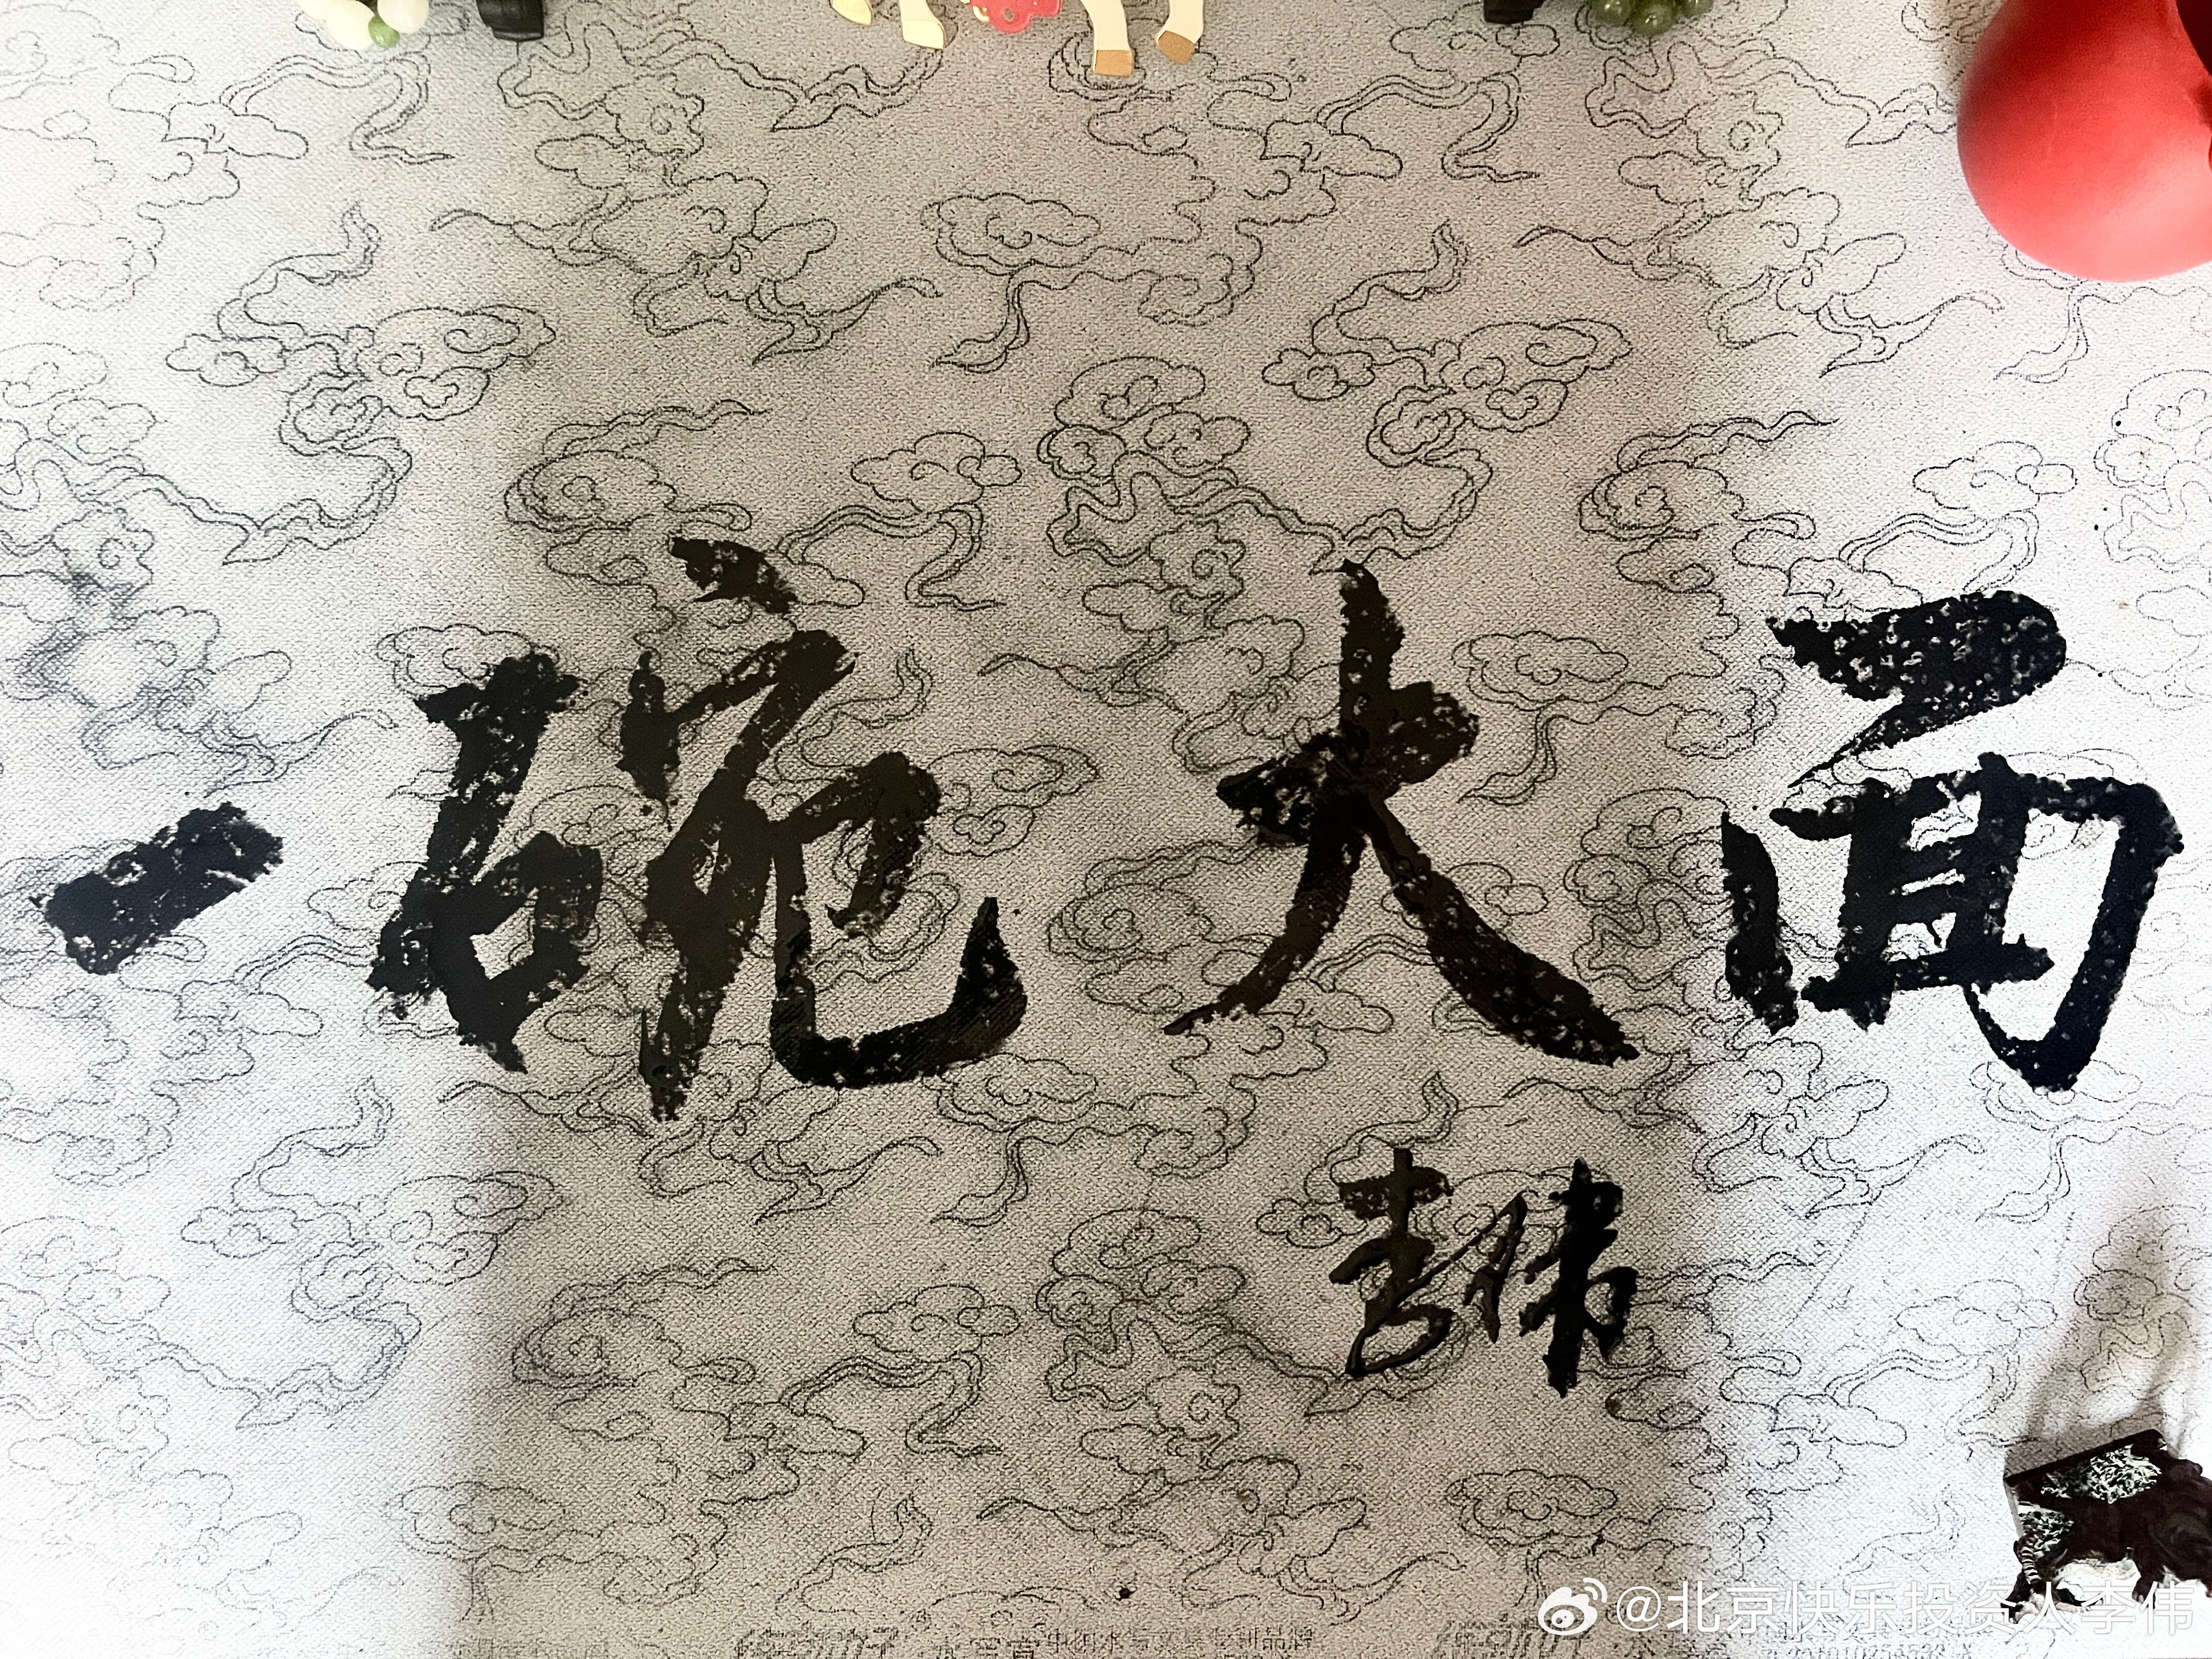 一碗大面
李伟
@北京快乐投资人李伟